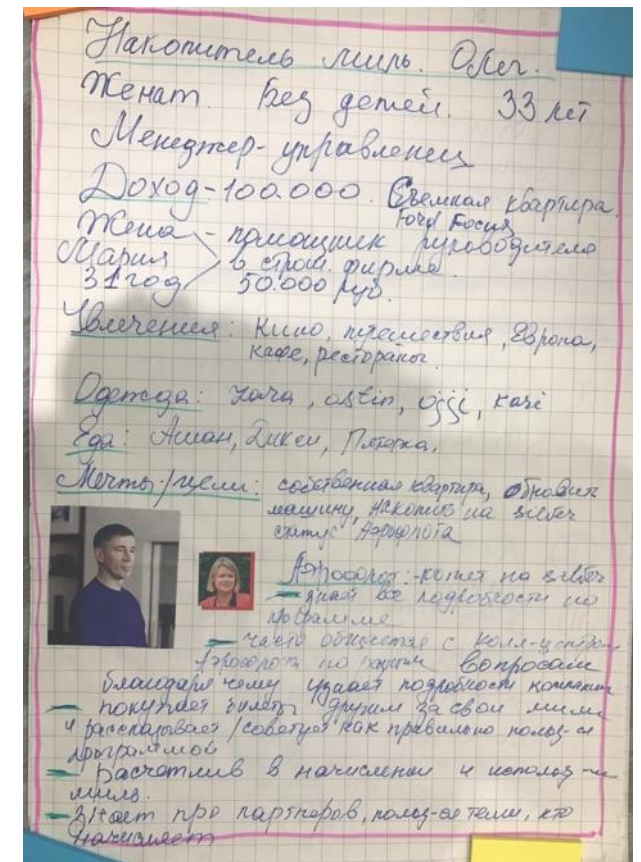 Накопитель миль. Олег.
Женат. Без детей. 33 лет
Менеджер-управленец
Доход-100.000. Съемная квартира.
Ford Focus
Жена - помощник руководителя
Мария в строит. фирме.
31 год 50.000 руб.
Увлечения: кино, путешествия, Европа,
кафе, рестораны.
Одежда: zara, ostin, oggi, kari
Еда: Ашан, Дикси, Пятерка,
Мечты/цели: собственная квартира, обновить
машину, накопить на silver
статус Аэрофлота
Аэрофлот: -копит на silver
- знает все подробности по
программе
- часто общается с колл-центром
Аэрофлота по вопросам
благодаря чему узнает подробности компании
- покупает билеты друзьям за свои мили
и рассказывает/советует как правильно польз-ся
программой
- Расчетлив в начислении и использ-и
миль.
- Знает про партнеров, польз-ся теми, кто
начисляет